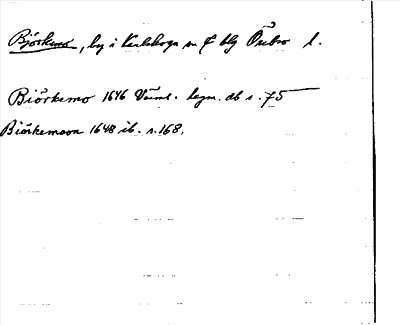 Björkemo, by i Karlskoga sn f blg Örebro l.
Biörkemo 1646 Värml. lagm. db s. 75
Biörkemoon 1648 ib. s. 168.